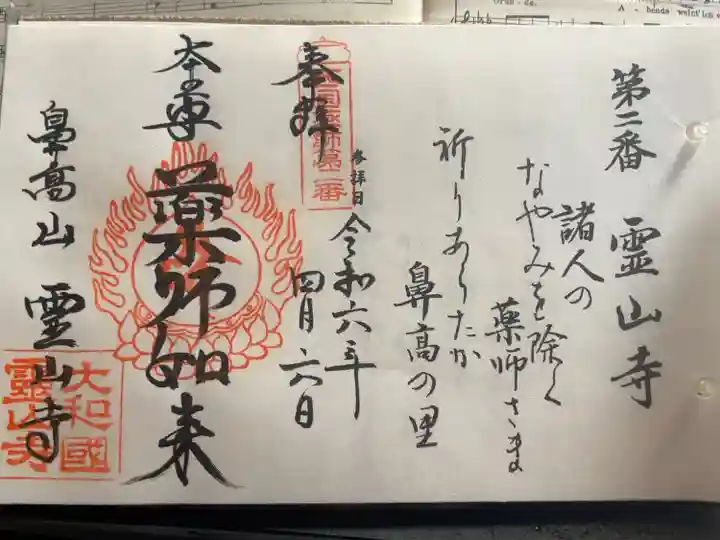 第二番 霊山寺
諸人の
なやみを除く
薬師さま
祈りありたか
鼻高の里
奉拝
西国薬師第二番
参拝日 令和六年
四月六日
本尊 薬師如来
鼻高山 霊山寺
大和國
靈山寺